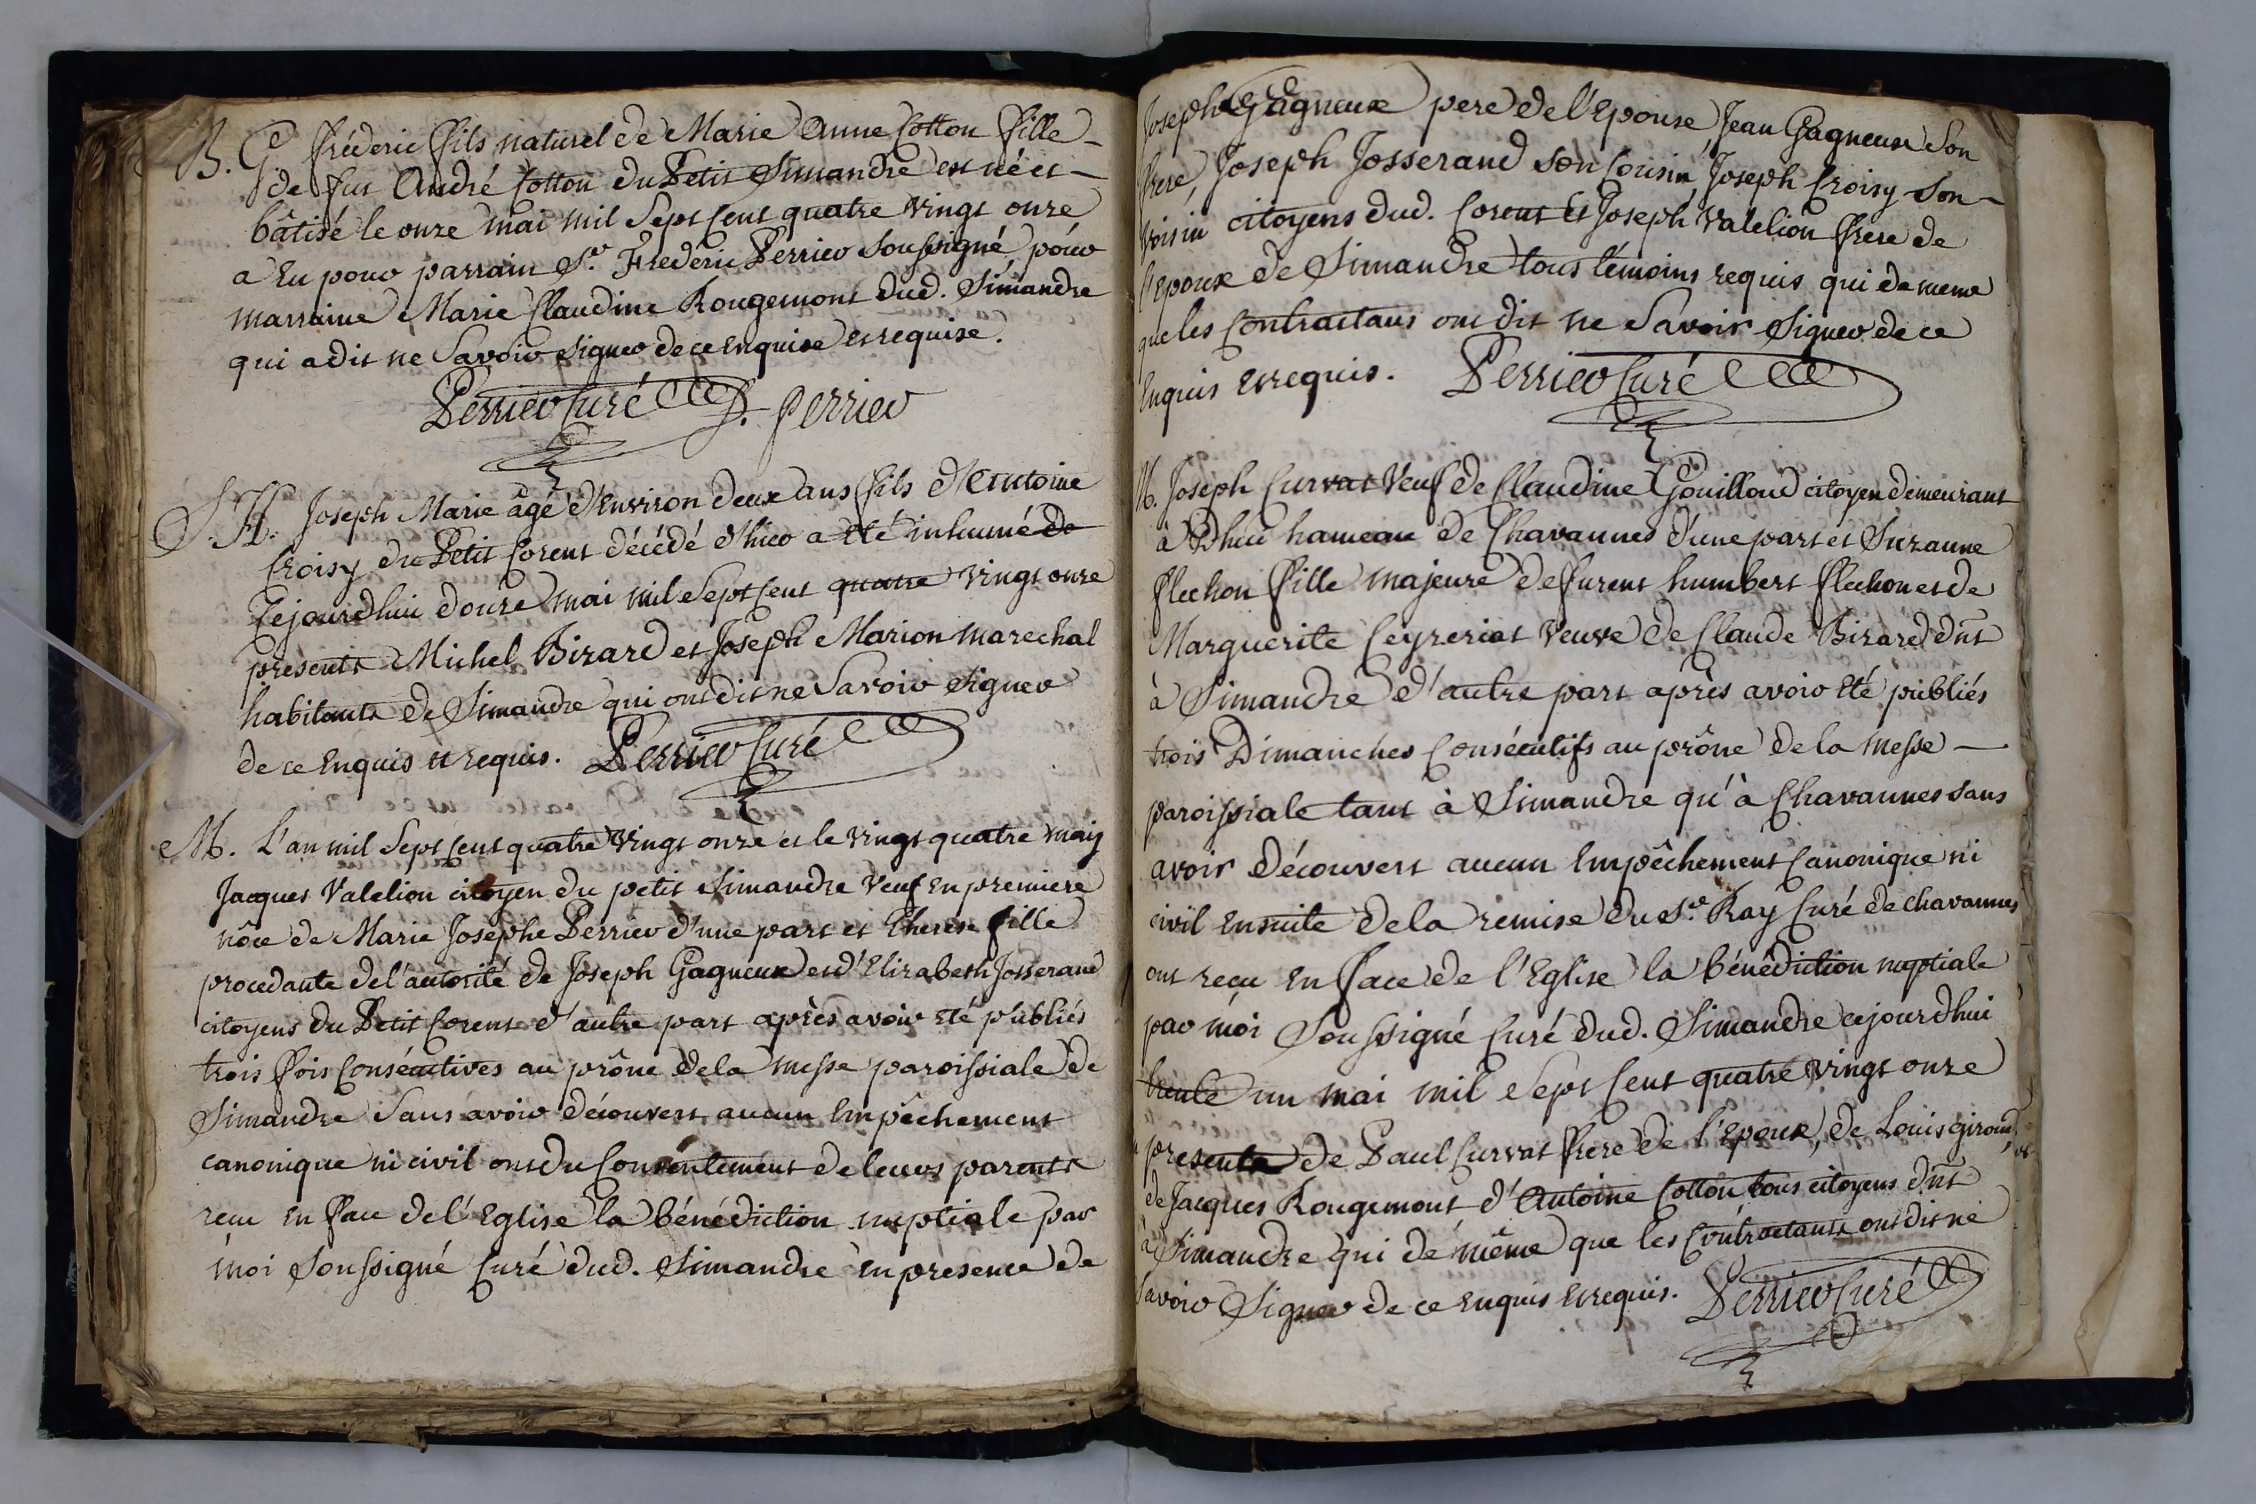 B. G. fréderic fils naturel de Marie Anne Cotton fille
de fut André Cotton du Petit Simandre est né et
bâtisé le onze mai mil Sept Cent quatre vingt onze
a Eu pour parrain Sr. Frederic Perrier Soussigné, pour
marraine Marie Claudine Rougemont dud. Simandre
qui a dit ne Savoir signer de ce Enquise et requise.
Perrier Curé F. perrier
S. H. Joseph Marie âgé d'Environ deux ans fils d'Antoine
Croisy du Petit Corent décédé d'hier a été inhumé
Cejourdhui douze mai mil Sept Cent quatre vingt onze
presents Michel Bizard et Joseph Marion marechal
habitants de Simandre qui ont dit ne Savoir signer
de ce Enquis et requis. Perrier Curé
M. L'an mil Sept Cent quatre vingt onze et le vingt quatre may
Jacques Valelion citoyen du petit Simandre Veuf En premiere
nôce de Marie Josephe Perrier d'une part et Therese fille
procedante de l'autorité de Joseph Gagneux et d'Elizabeth Josserand
citoyens du Petit Corent d'autre part après avoir été publiés
trois fois Consécutives au prône de la messe paroissiale de
Simandre Sans avoir découvert aucun Empêchement
canonique ni civil ont du Consentement de leurs parents
reçu En face de l'Eglise la bénédiction nuptiale par
moi Soussigné Curé dud. Simandre En presence de
Joseph Gagneux pere de l'Epouse Jean Gagneux Son
frere, Joseph Josserand son Cousin, Joseph Croisy son
voisin citoyens dud. Corent Et Joseph Valelion frere de
l'epoux de Simandre tous témoins requis qui de meme
que les Contractans ont dit ne Savoir signer de ce
Enquis et requis. Perrier Curé
M. Joseph Curvat Veuf de Claudine Gouilloud citoyen demeurant
à Dhuis hameau de Chavannes d'une part et Suzanne
flechon fille majeure deffurent humbert flechon et de
Marguerite Ceyzeriat veuve de Claude Bizard dnt
à Simandre d'autre part après avoir été publiés
trois Dimanches Consécutifs au prône de la messe
paroissiale tant à Simandre qu'à Chavannes sans
avoir découvert aucun Empêchement Canonique ni
civil ensuite de la remise du Sr. Ray Curé de chavannes
ont reçu En face de l'Eglise la bénédiction nuptiale
par moi Soussigné Curé dud. Simandre cejourdhui
trente un mai mil Sept Cent quatre vingt onze
presents de Paul Curvat frere de l'epoux, de Louis giroud, et
de Jacques Rougemont d'Antoine Cotton tous citoyens dnt
à Simandre qui de même que les Contractants ont dit ne
savoir Signer de ce Enquis et requis. Perrier Curé